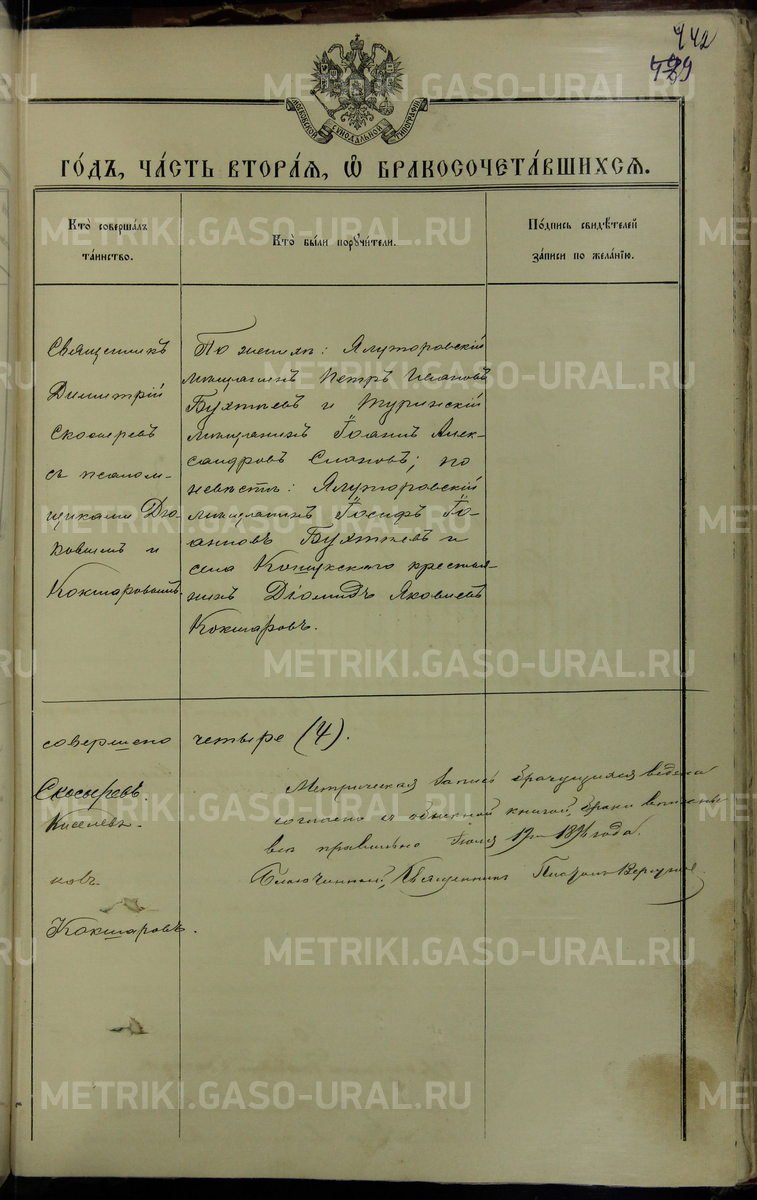 442
729
МОСКОВСКОЙ СѴНОДАЛЬНОЙ ТИПОГРАФІИ
ГО́ДЪ, ЧА́СТЬ ВТОРА́Я, Ѡ҆ БРАКОСОЧЕТА́ВШИХСЯ.
Кто̀ соверша́лъ
та́инство.
Кто̀ бы́ли порꙋчи́тели.
По́дпись свидѣ́телей
за́писи по жела́нїю.
Священникъ
Димитрій
Скосыревъ
съ псалом-
щиками Дю-
ковымъ и
Кокшаровымъ
По женихѣ: Ялуторовскій
мѣщанинъ Петръ Ивановъ
Бухтѣевъ и Туринскій
мѣщанинъ Іоаннъ Алек-
сандровъ; по
невѣстѣ: Ялуторовскій
мѣщанинъ Іосифъ Іо-
анновъ Бухтѣевъ и
села Кошукского крестья-
нинъ Діомидъ Яковлевъ
Кокшаровъ.
совершено четыре (4).
Скосыревъ.
Киселевъ.
ковъ.
Кокшаровъ.
Метрическая запись брачущихся ведена
согласно съ обыскной книгой, браки
всѣ правильно Іюля 19 дня года.
Благочинный, Священникъ
METRIKI.GASO-URAL.RU